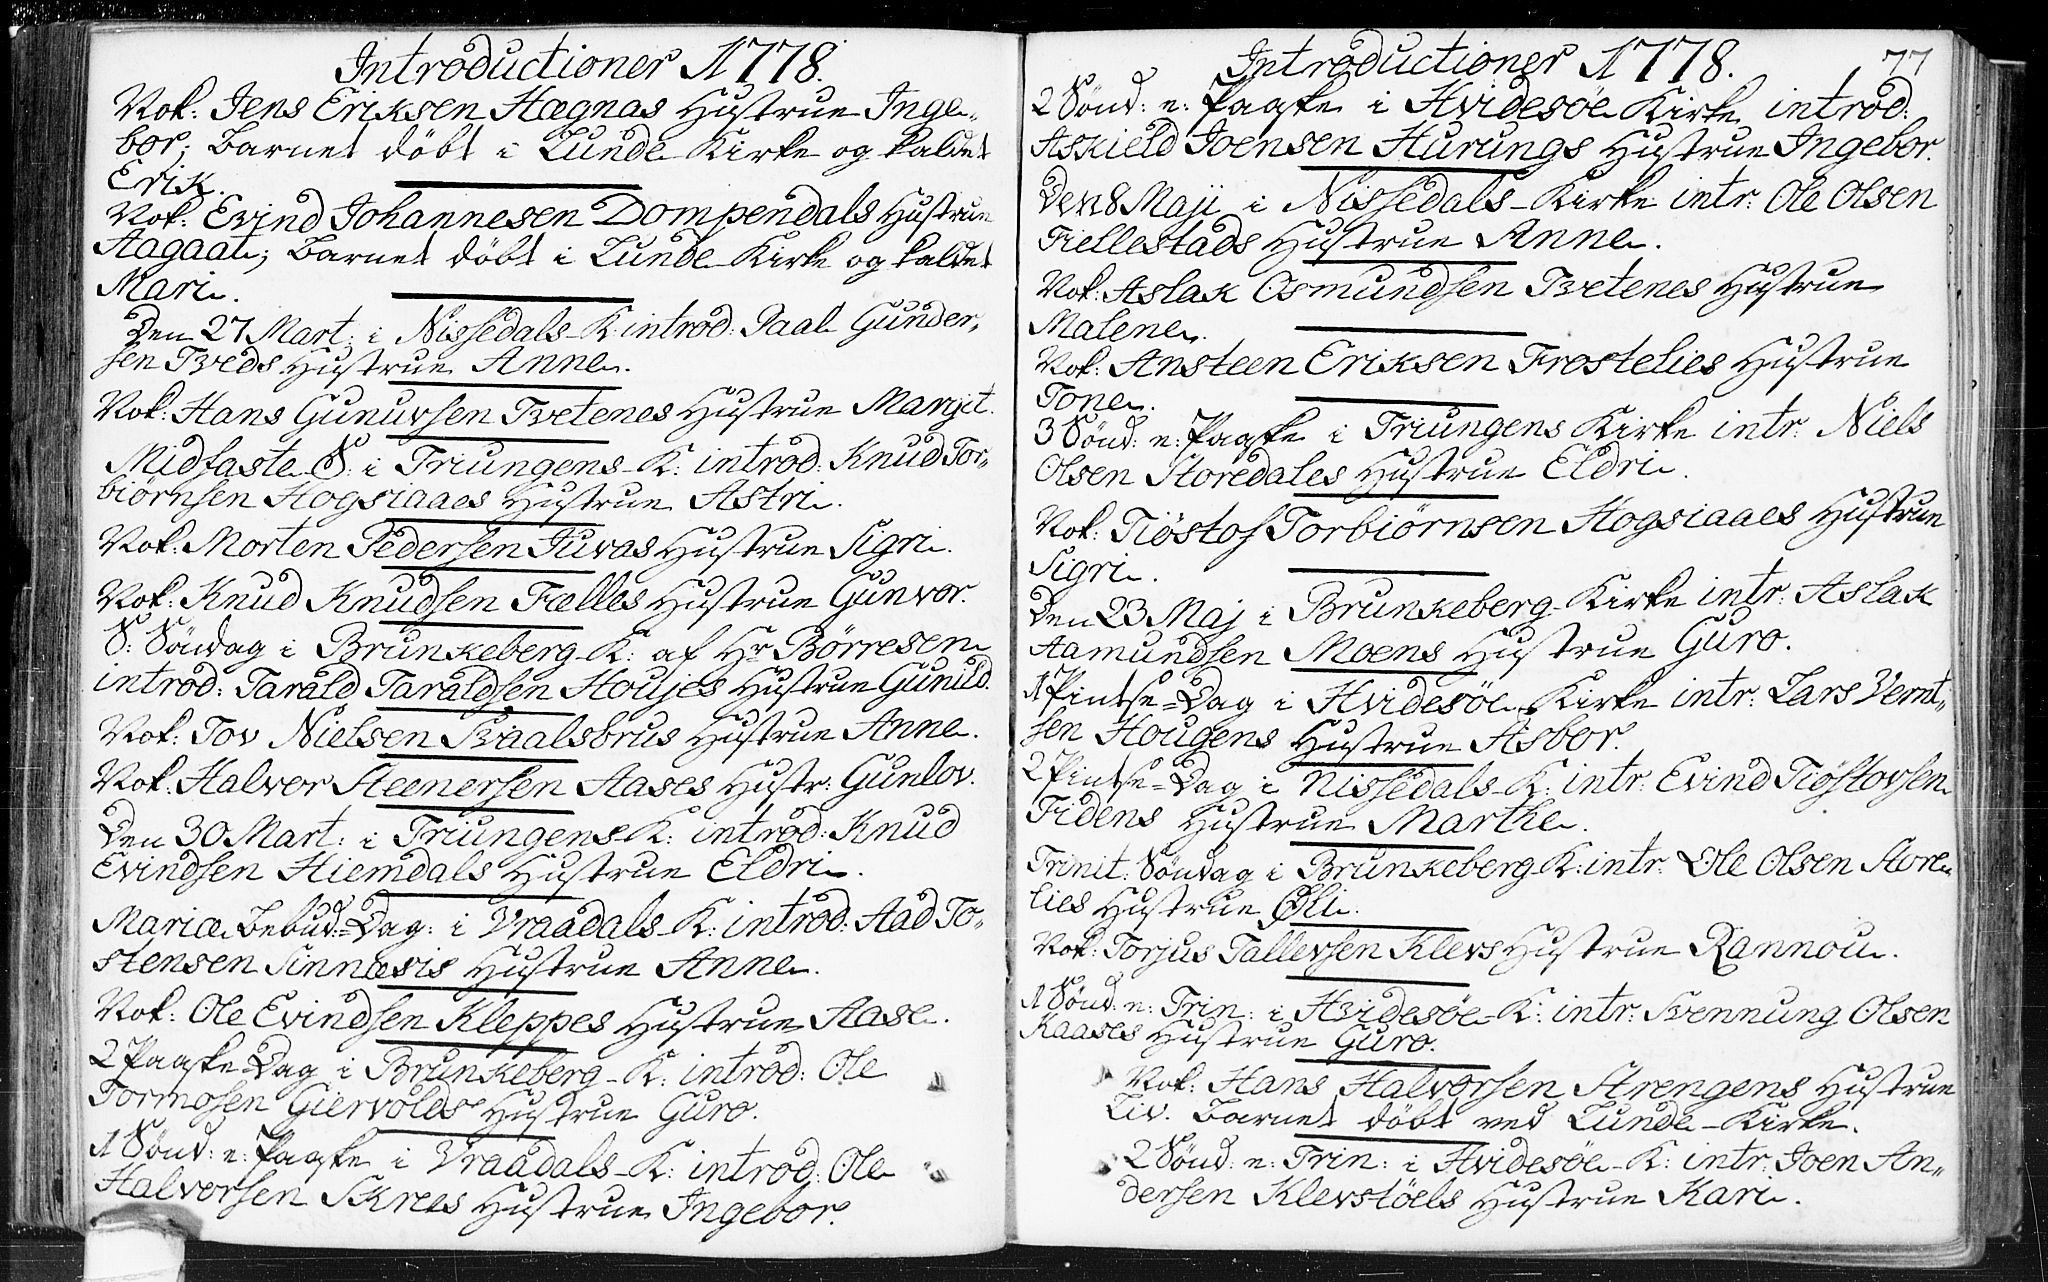 Introductioner 1778.
Vok: Jens Eriksen Hægnas Hustrue Inge-
bor; Barnet döbt i Lunde Kirke og kaldet
Erik.
Vok: Evind Johannesen Dompendals Hustrue
Aagaat; Barnet döbt i Lunde Kirke og kaldet
Mari.
Den 27 Mart: i Nissedals K: introd: Paal Gunder-
sen Tveds Hustrue Anne.
Vok: Hans Gunuvsen Tvetenes Hustrue Margit.
Midfaste S: i Triungens K: introd: Knud Tor-
biörnsen Hogsiaaes Hustrue Astri.
Vok: Morten Pedersen Juvas Hustrue Sigri.
Vok: Knud Knudsen Fælles Hustrue Gunvor.
S: Söndag i Brunkeberg K: af Hr Börresen
introd: Tarald Taraldsen Houjes Hustrue Gunild.
Vok: Tov Nielsen Svaalsbrus Hustrue Anne.
Vok: Halvor Steenersen Aases Hustr: Gunlov.
Den 30 Mart: i Triungens K: introd: Knud
Evindsen Hiemdals Hustrue Eldri.
Mariæ Bebud: Dag: i Vraadals K: introd: Aad To-
stensen Sinnæsis Hustrue Anne.
Vok: Ole Evindsen Kleppes Hustrue Aase.
2 Paaske Dag i Brunkeberg K: introd: Ole
Tormosen Giervolds Hustrue Guro.
1 Sönd: e: Paaske i Vraadals K: introd: Ole
Halvorsen Skrees Hustrue Ingebor.
Introductioner 1778.
77
2 Sönd: e: Paaske i Hvidesöe Kirke introd:
Askield Joensen Hurungs Hustrue Ingebor.
Den 8 Maji i Nissedals Kirke intr: Ole Olsen
Fiellestads Hustrue Anne.
Vok: Aslak Osmundsen Tvetenes Hustrue
Malene.
Vok: Ansteen Eriksen Frostelies Hustrue
Tone.
3 Sönd: e: Paaske i Triungens Kirke intr: Niels
Olsen Storedales Hustrue Eldri.
Vok: Tiöstof Torbiörnsen Hogsiaaes Hustrue
Sigri.
Den 23 Maj i Brunkeberg Kirke intr: Aslak
Aamundsen Moens Hustrue Guro.
1 Pintse-Dag i Hvidesöe Kirke intr: Lars Vernt-
sen Hougens Hustrue Asbor.
2 Pintse-Dag i Nissedals K: intr: Evind Tiöstovsen
Fidens Hustrue Marthe.
Trinit: Söndag i Brunkeberg K: intr: Ole Olsen Store-
lies Hustrue Öli.
Vok: Torjus Tallevsen Klevs Hustrue Rannou.
1 Sönd: e: Trin: i Hvidesöe K: intr: Svennung Olsen
Kaases Hustrue Guro.
Vok: Hans Halvorsen Strengens Hustrue
Liv. Barnet döbt ved Lunde Kirke.
2 Sönd: e: Trin: i Hvidesöe K: intr: Joen An-
dersen Klevstöels Hustrue Kari.